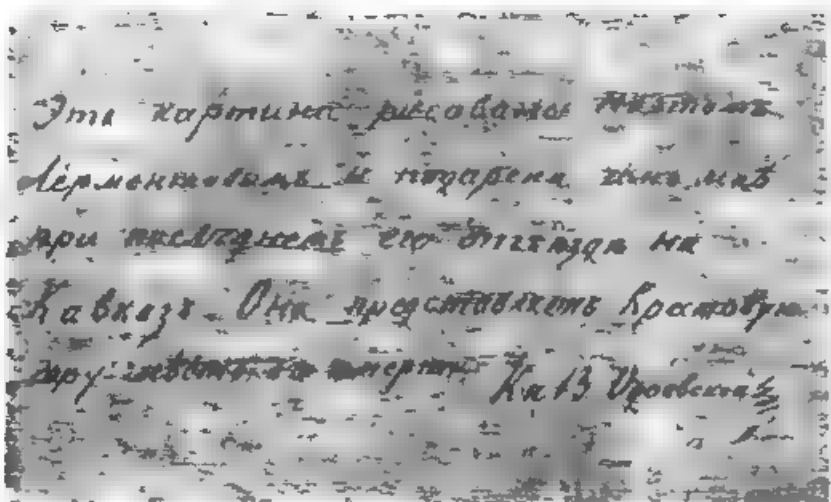 Эта картина рисована поэтомъ
Лермонтовымъ и подарена имъ мнѣ
при последнемъ его отъездѣ на
Кавказъ. Она представляетъ Крестовую
гору